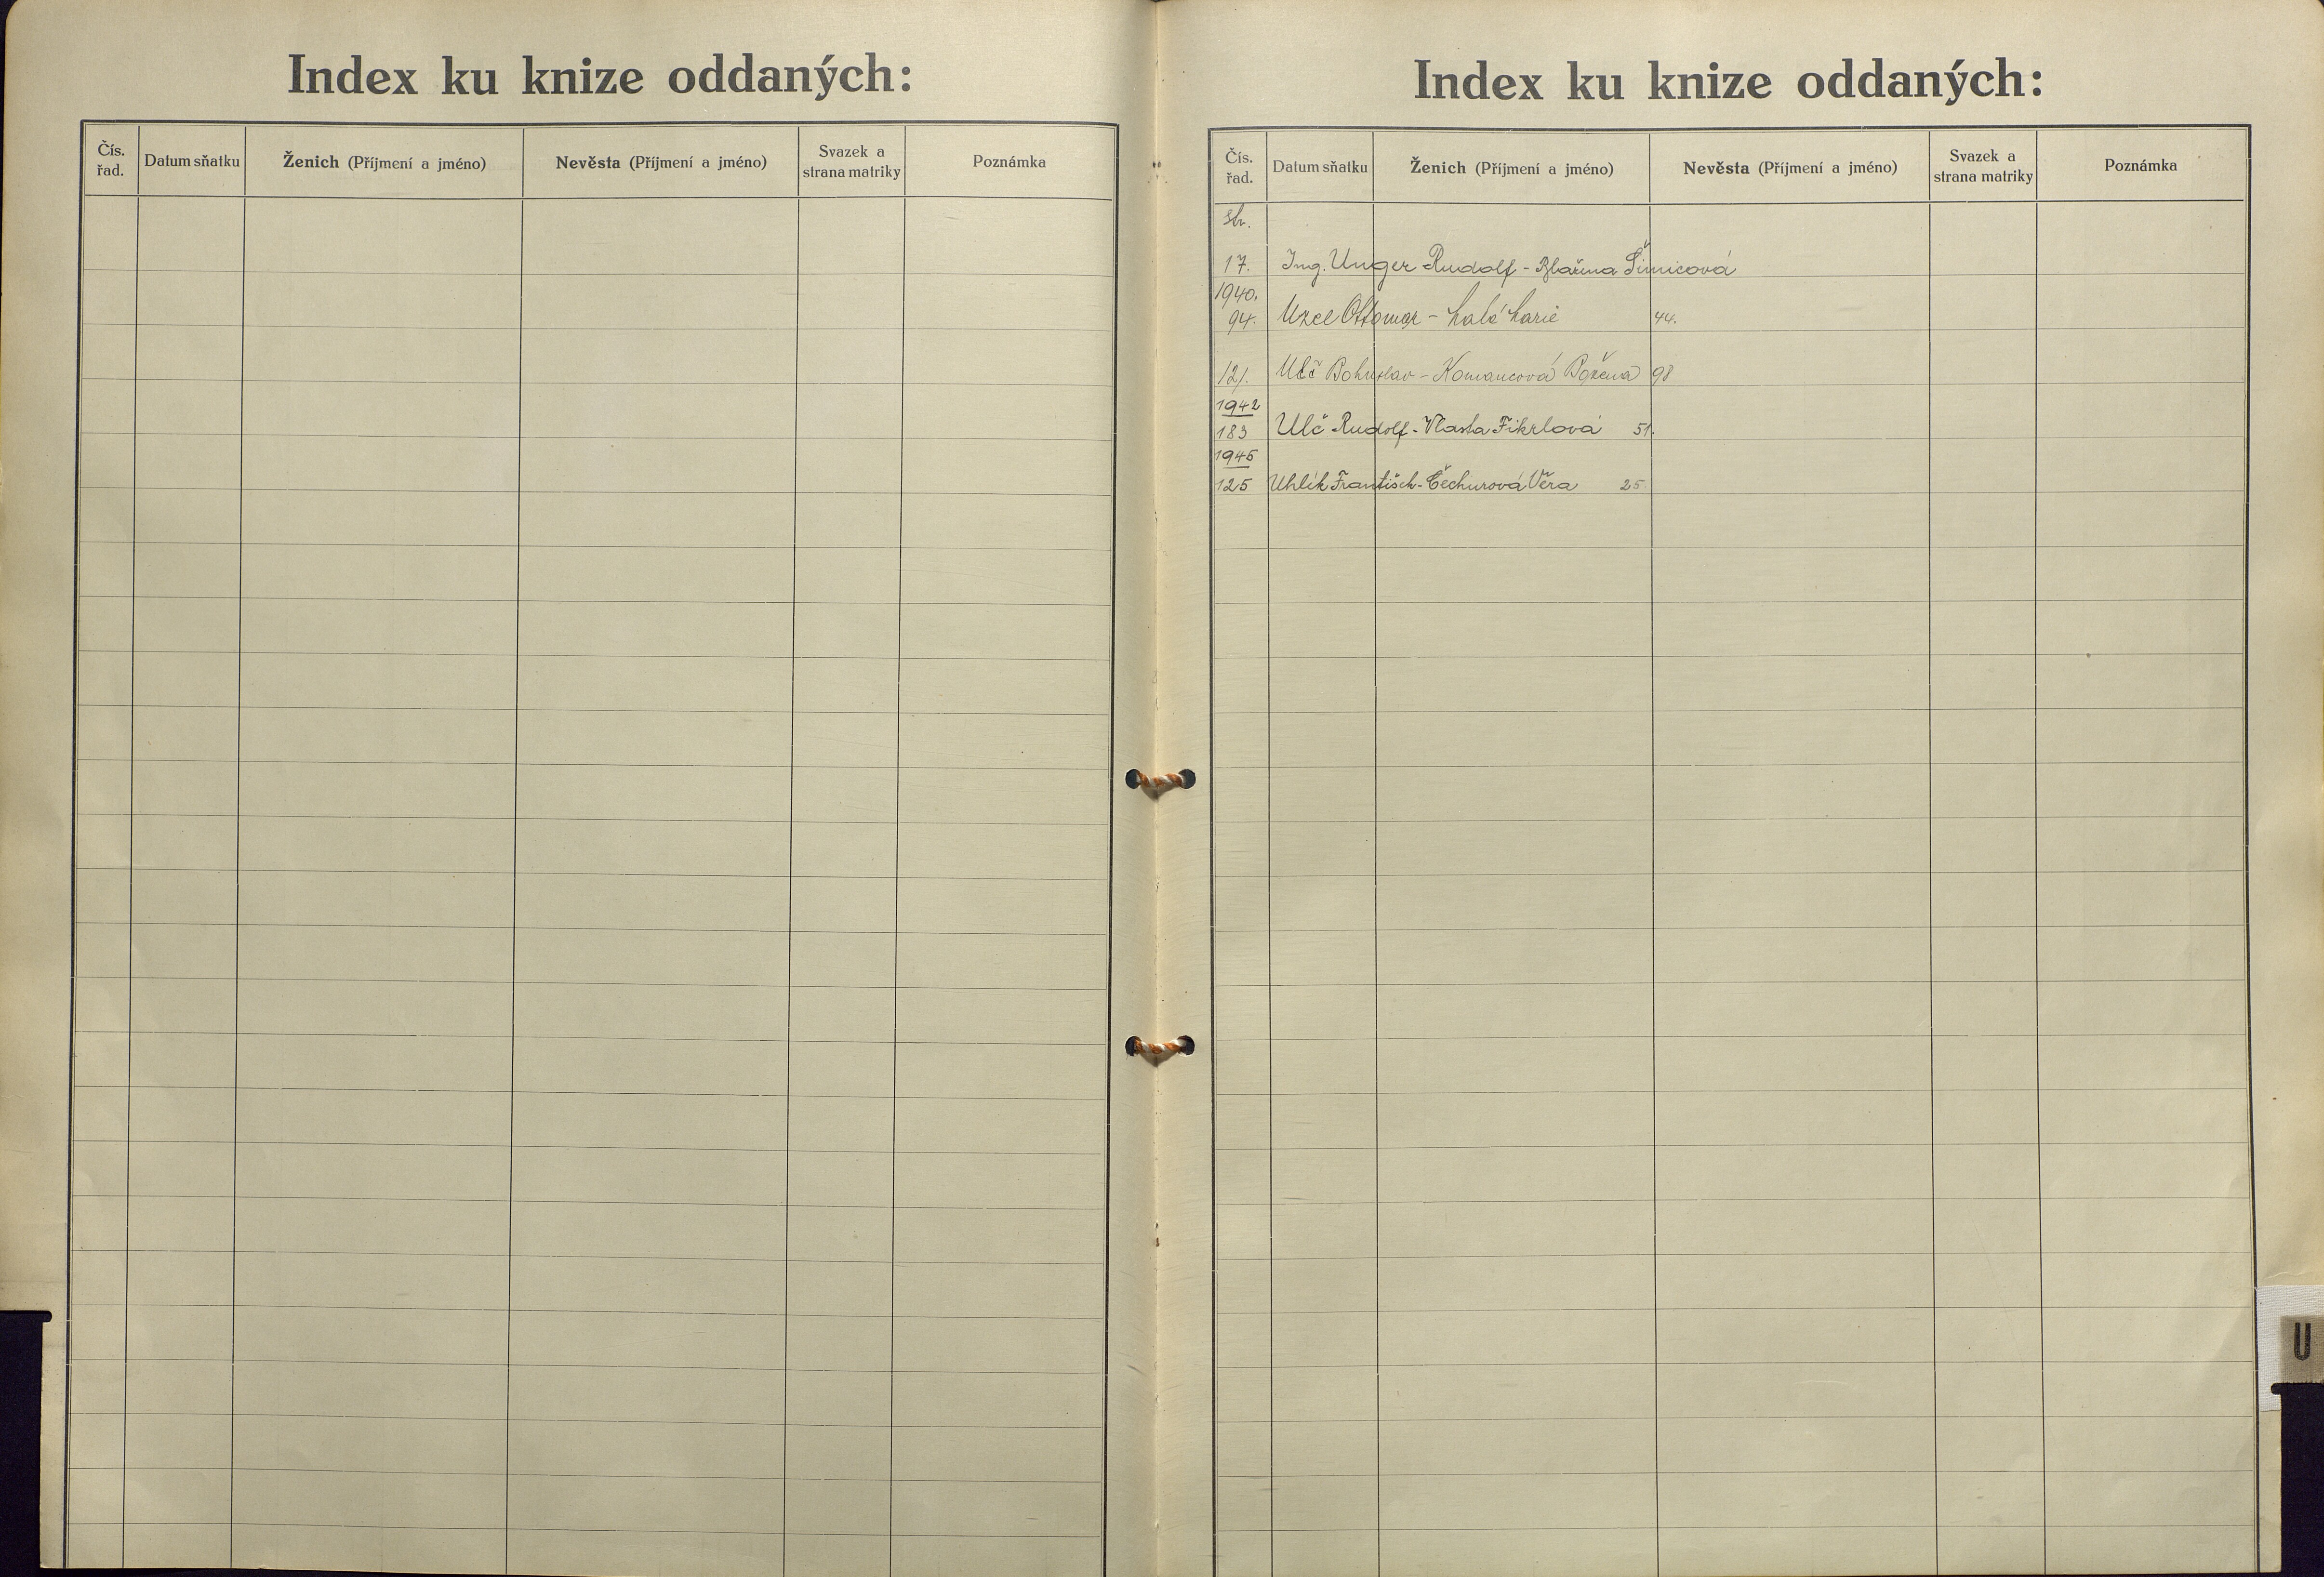 Index ku knize oddaných:
Čís. řad. Datum sňatku Ženich (Příjmení a jméno) Nevěsta (Příjmení a jméno) Svazek a strana matriky Poznámka
Index ku knize oddaných:
Čís. řad. Datum sňatku Ženich (Příjmení a jméno) Nevěsta (Příjmení a jméno) Svazek a strana matriky Poznámka
str.
17. Ing. Unger Rudolf -
1940.
94. Uzel Ottomar - Malá Marie 44.
121. Ulč Bohuslav - Božena 98
1942
183 Ulč Rudolf - Vlasta Fikrlová 51.
1945
125 Uhlík František - Čechurová Věra 25.
U